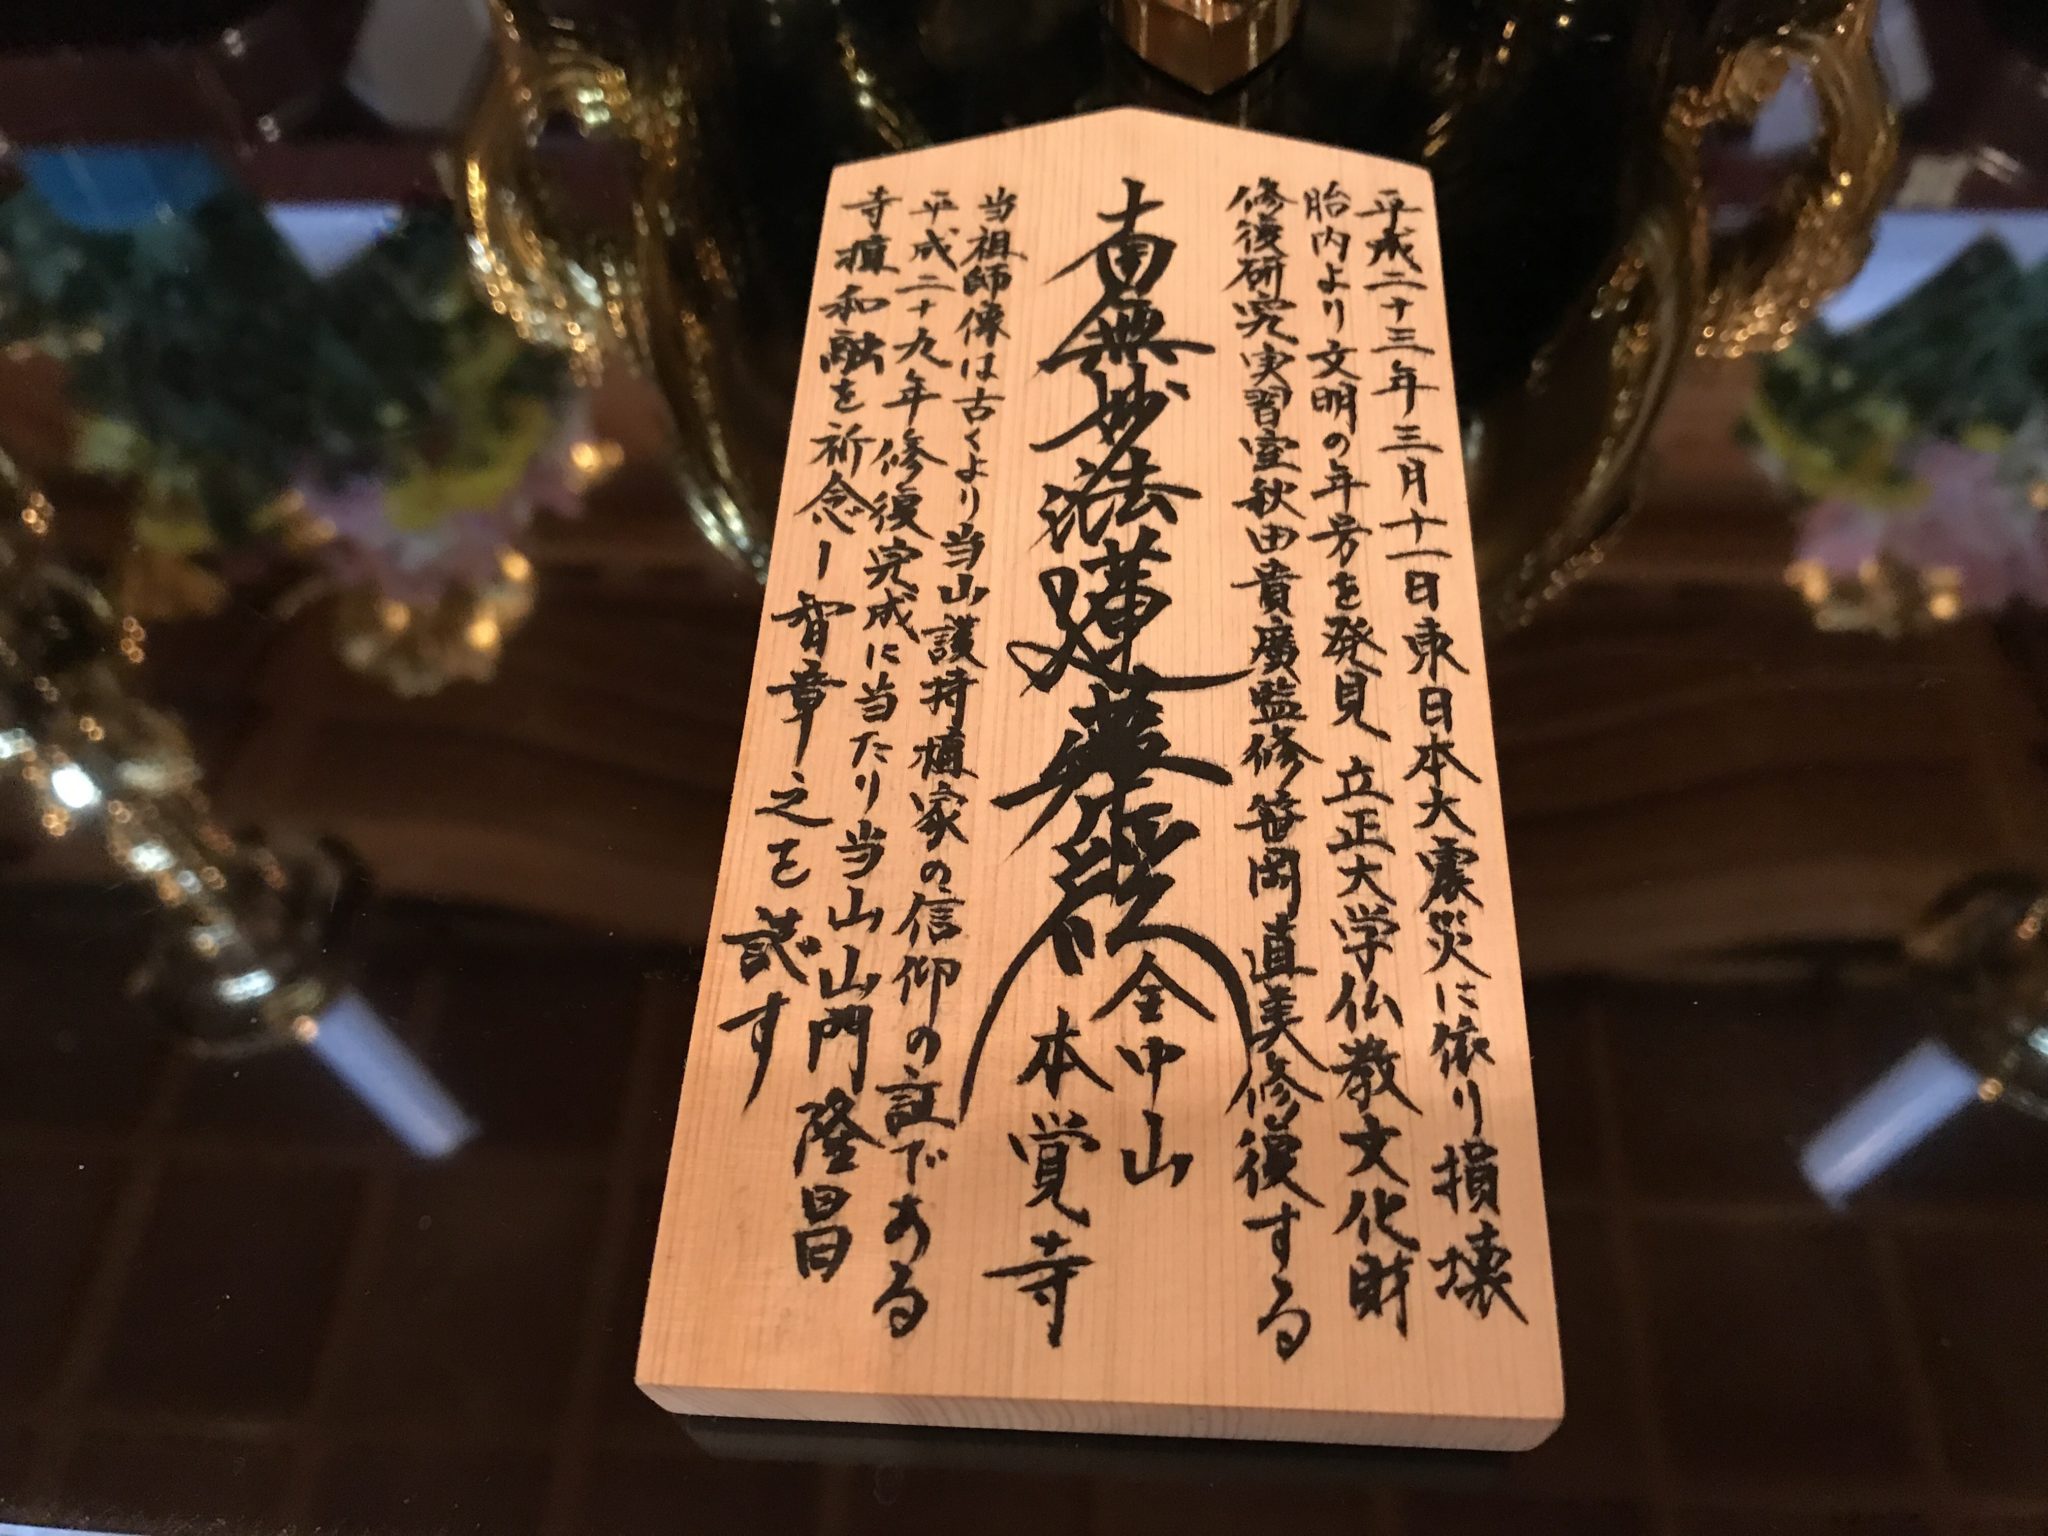 平成二十三年三月十一日東日本大震災に依り損壊
胎内より文明の年号を発見 立正大学仏教文化財
修復研究実習室秋田貴廣監修笹岡直美修復する
南無妙法蓮華経
全中山
本覚寺
当祖師像は古くより当山護持檀家の信仰の証である
平成二十九年修復完成に当たり当山山門隆昌
寺檀和融を祈念し智章之を誌す